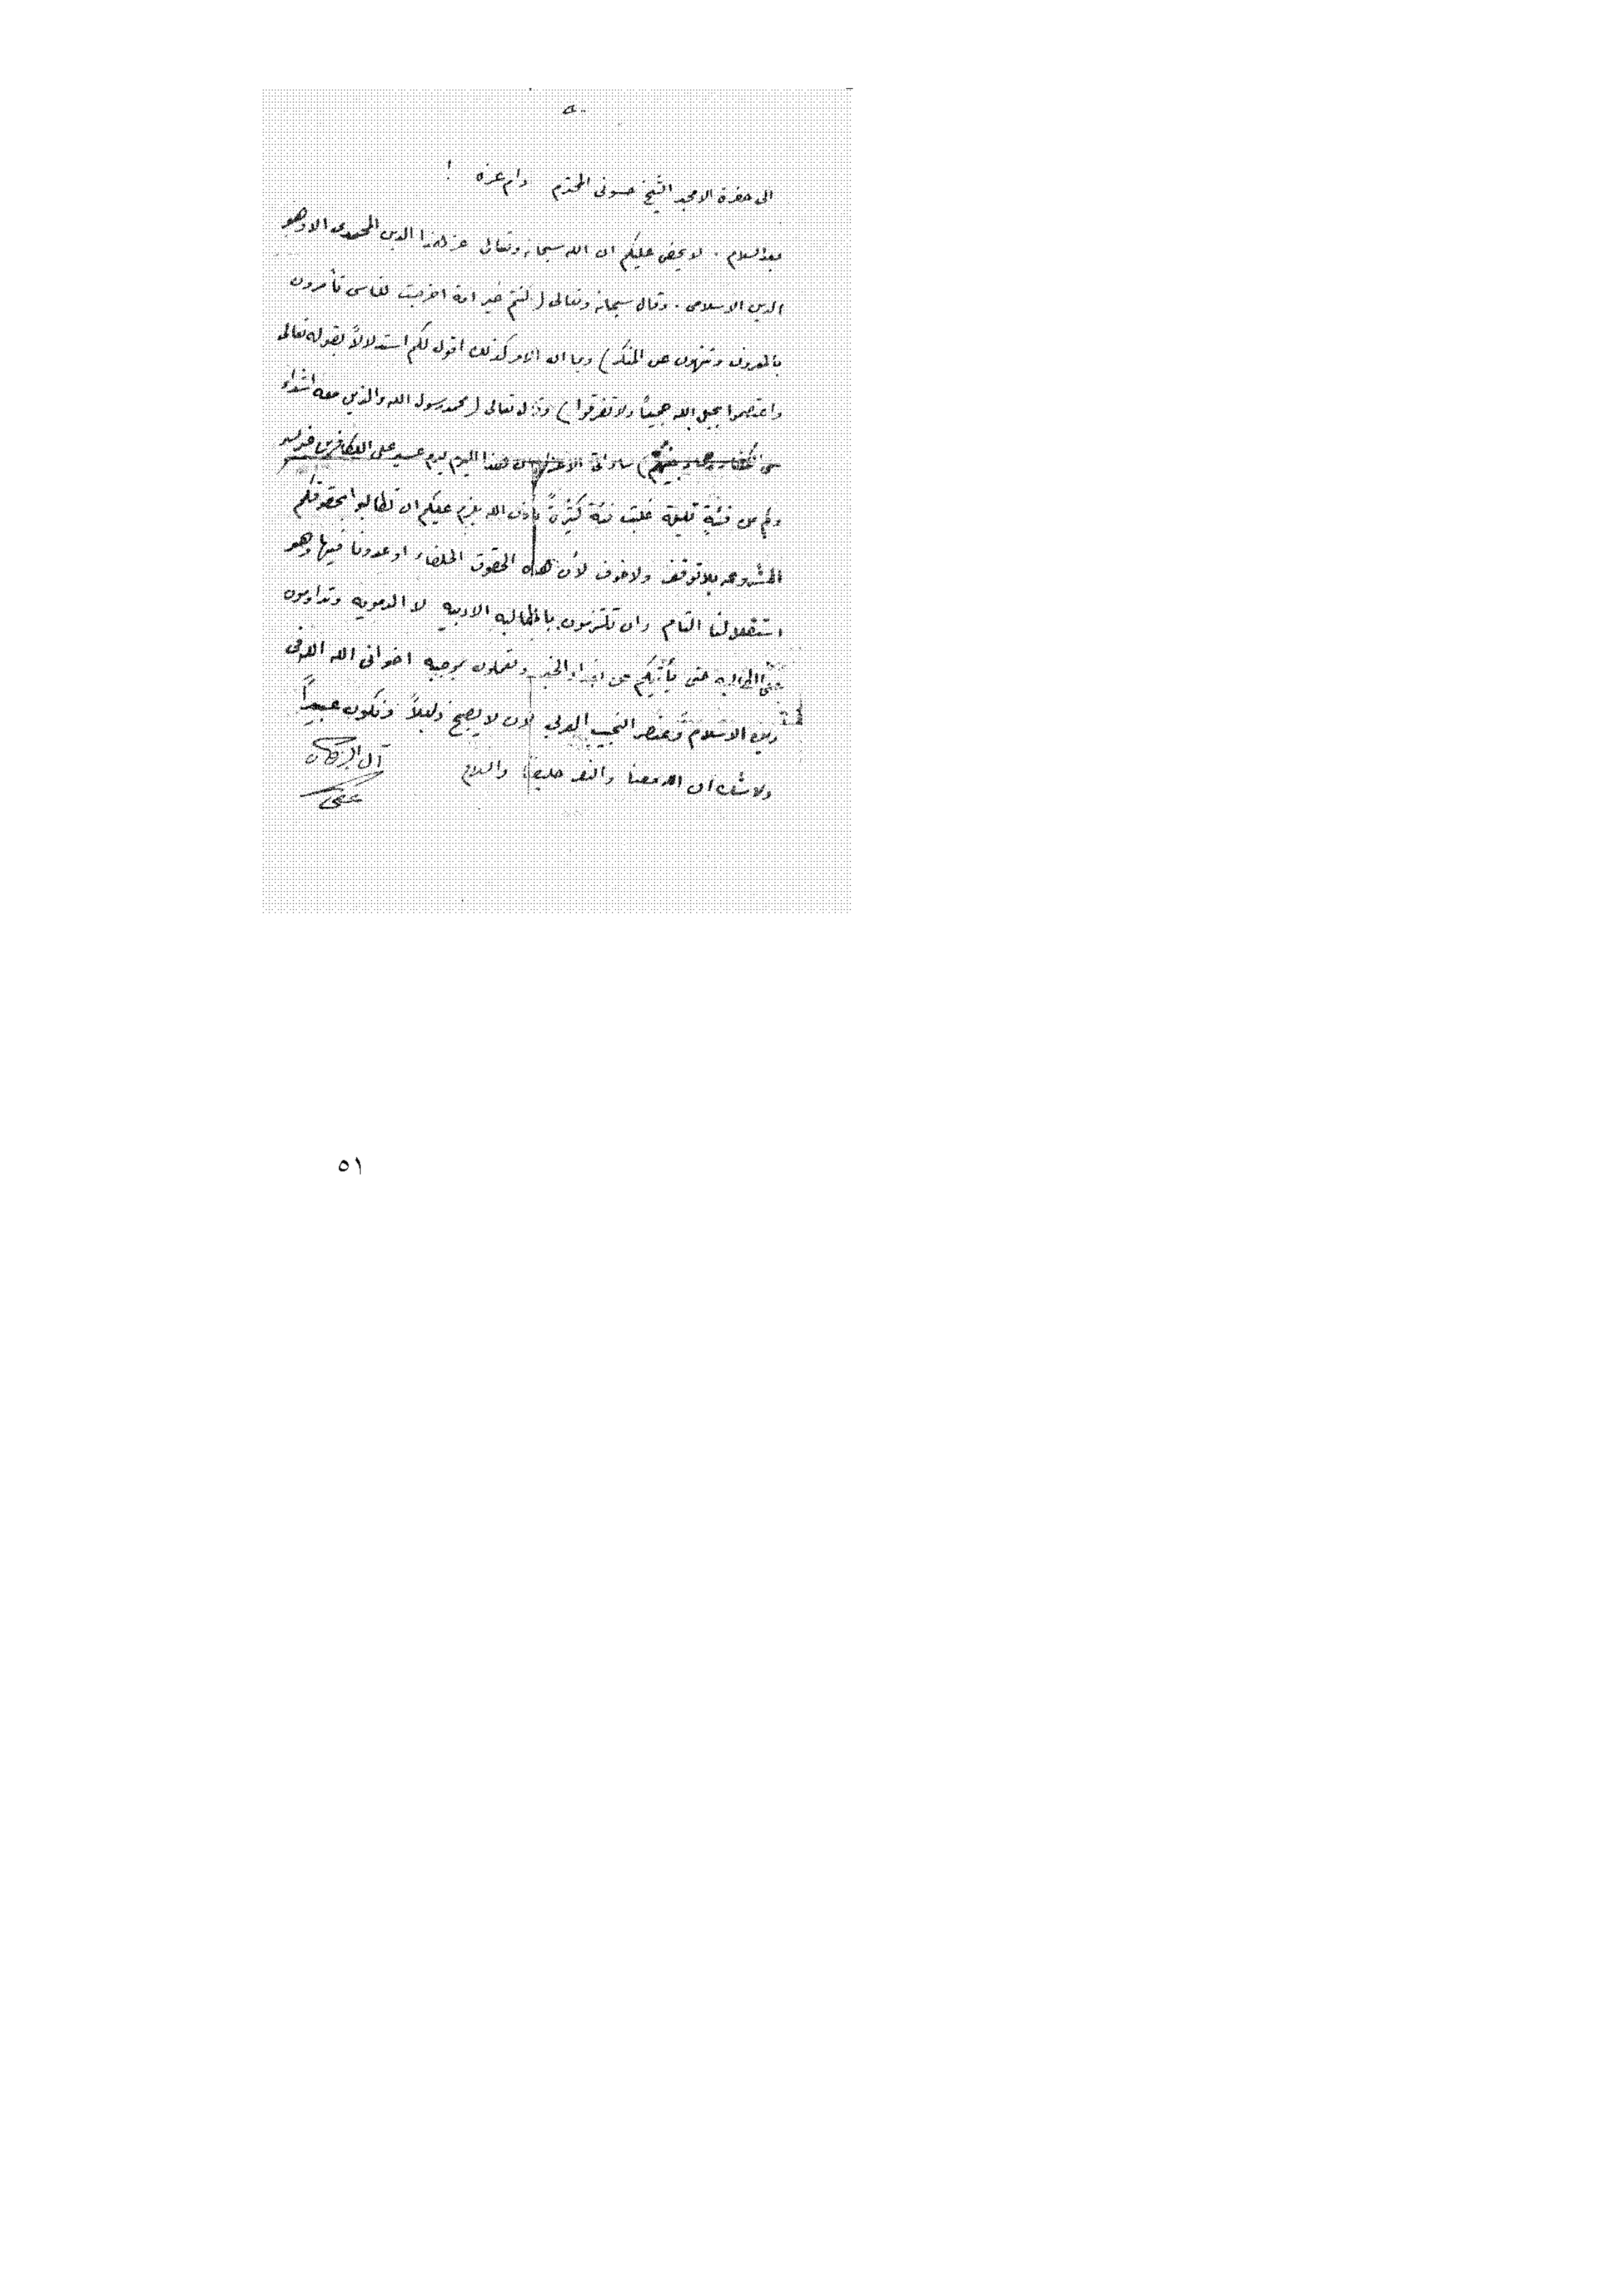 الى حضرة الامجد الشيخ حسوني المحترم دام عزه !
بعد السلام . لا يخفى عليكم ان الله سبحانه وتعالى عزز هذا الدين المحمدى الا وهو
الدين الاسلامى . وقال سبحانه وتعالى ( كنتم خير امة اخرجت للناس تأمرون
بالمعروف وتنهون عن المنكر ) وبما ان الامر كذلك اقول لكم استدلالاً بقوله تعالى
واعتصموا بحبل الله جميعاً ولا تفرقوا ) وقال تعالى ( محمد رسول الله والذين معه اشداء
على الكفار رحماء بينهم ) هذا اليوم يوم عسير على الكافرين غير يسير
وكم من فئةٍ قليلة غلبت فئة كثيرةً باذن الله يلزم عليكم ان تطالبوا بحقوقكم
المشروعه بلا توقف ولا خوف لأن هذه الحقوق الحلفاء اوعدونا فيها وهو
استقلالنا التام وان تلتزمون بالمطالبه الادبيه لا الدمويه وتداومون
على المطالبه حتى يأتيكم من بغداد الخبر وتعملون بموجبه اخوانى الله الله فى
دين الاسلام وعنصر النجيب العربي لان لا يصبح ذليلاً ونكون عبيداً
ولا شك ان الله معنا والنصر حليفنا والسلام
٥١